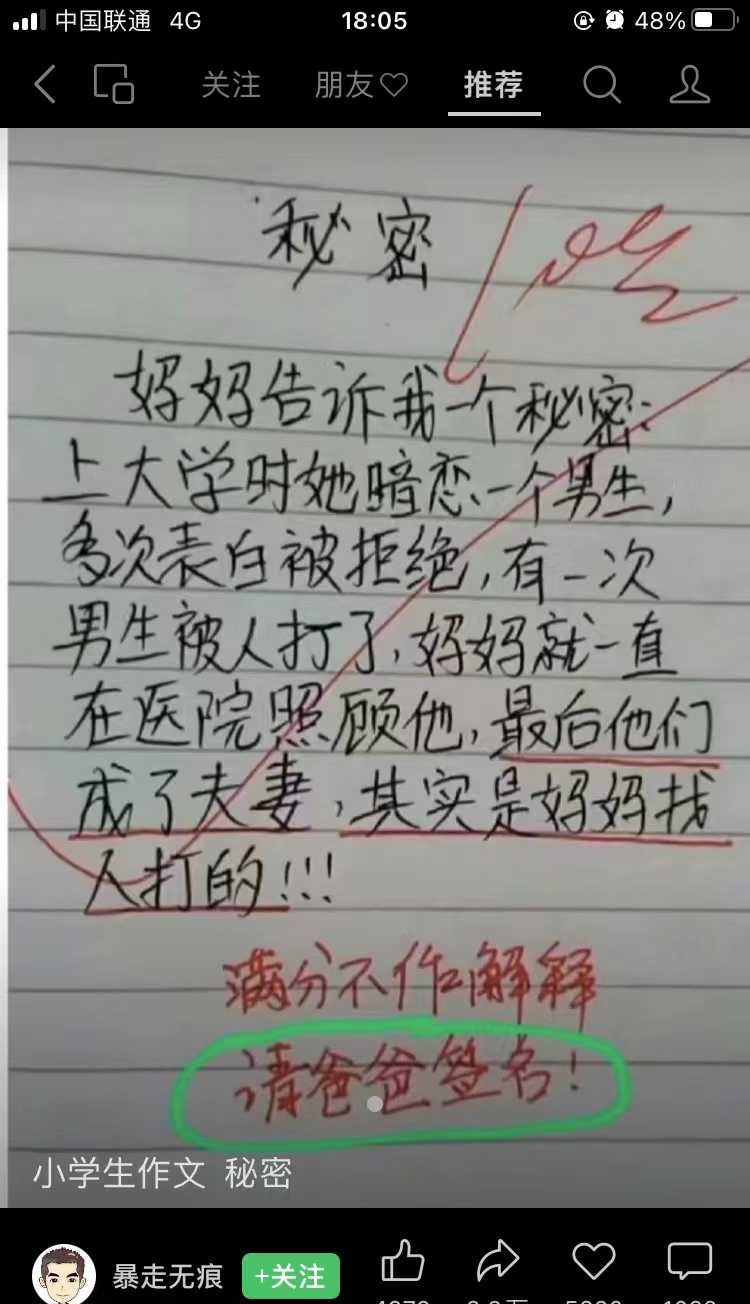 中国联通 4G 18:05 48%
关注 朋友♡ 推荐
秘密
妈妈告诉我一个秘密:
上大学时她暗恋一个男生,
多次表白被拒绝,有一次
男生被人打了,妈妈就一直
在医院照顾他,最后他们
成了夫妻,其实是妈妈找
人打的!!!
满分不作解释
请爸爸签名!
小学生作文 秘密
暴走无痕 +关注